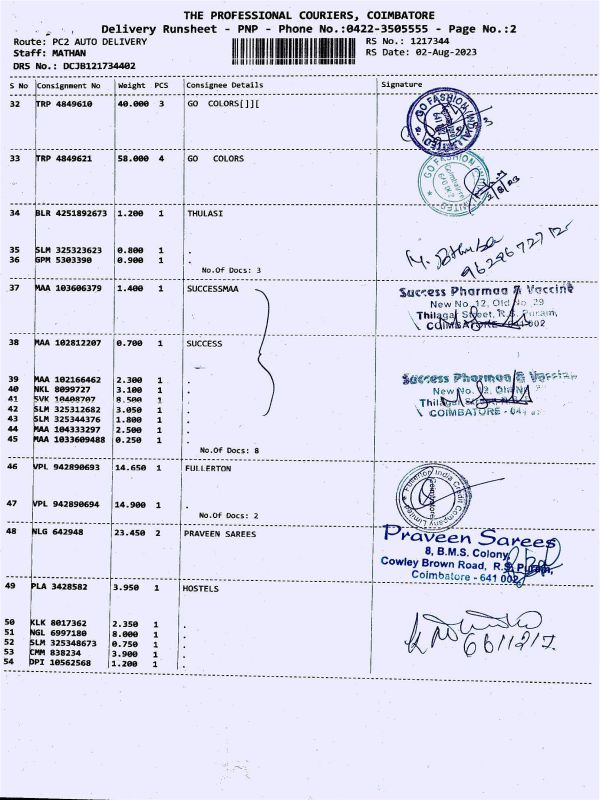 THE PROFESSIONAL COURIERS, COIMBATORE
Delivery Runsheet - PNP - Phone No.:0422-3505555 - Page No.:2
Route: PC2 AUTO DELIVERY RS No.: 1217344
Staff: MATHAN RS Date: 02-Aug-2023
DRS No.: DCJB121734402
S No Consignment No Weight PCS Consignee Details Signature
32 TRP 4849610 40.000 3 GO COLORS[][
GO FASHION
33 TRP 4849621 58.000 4 GO COLORS
GO FASHION
34 BLR 4251892673 1.200 1 THULASI
35 SLM 325323623 0.800 1 .
36 GPM 5303390 0.900 1 .
No.Of Docs: 3
37 MAA 103606379 1.400 1 SUCCESSMAA
Success Pharmaa & Vaccine
New No. 12, Old No. 29
Thilagar Street, R.S. Puram,
COIMBATORE - 641 002
38 MAA 102812207 0.700 1 SUCCESS
39 MAA 102166462 2.300 1 .
Success Pharmaa & Vaccine
40 NKL 8099727 3.100 1 .
New No. 12, Old No
41 SVK 10408707 8.500 1 .
42 SLM 325312682 3.050 1 .
COIMBATORE - 641
43 SLM 325344376 1.800 1 .
44 MAA 104333297 2.500 1 .
45 MAA 1033609488 0.250 1 .
No.Of Docs: 8
46 VPL 942890693 14.650 1 FULLERTON
Fullerton India Credit Company Limited
47 VPL 942890694 14.900 1 .
No.Of Docs: 2
48 NLG 642948 23.450 2 PRAVEEN SAREES
Praveen Sarees
8, B.M.S. Colony,
Cowley Brown Road, R.S. Puram,
Coimbatore - 641 002.
49 PLA 3428582 3.950 1 HOSTELS
50 KLK 8017362 2.350 1 .
51 NGL 6997180 8.000 1 .
52 SLM 325348673 0.750 1 .
53 CMM 838234 3.900 1 .
54 DPI 10562568 1.200 1 .